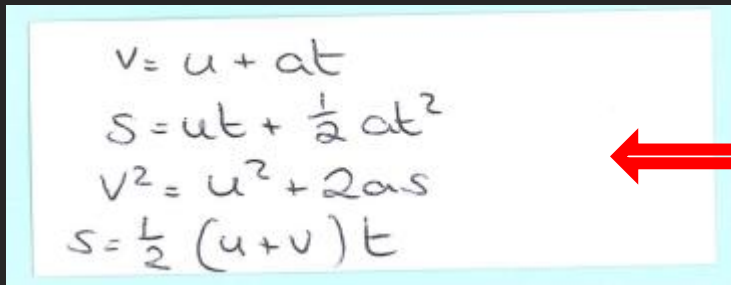 v = u + at
s = ut + ½ at²
v² = u² + 2as
s = ½ (u + v) t